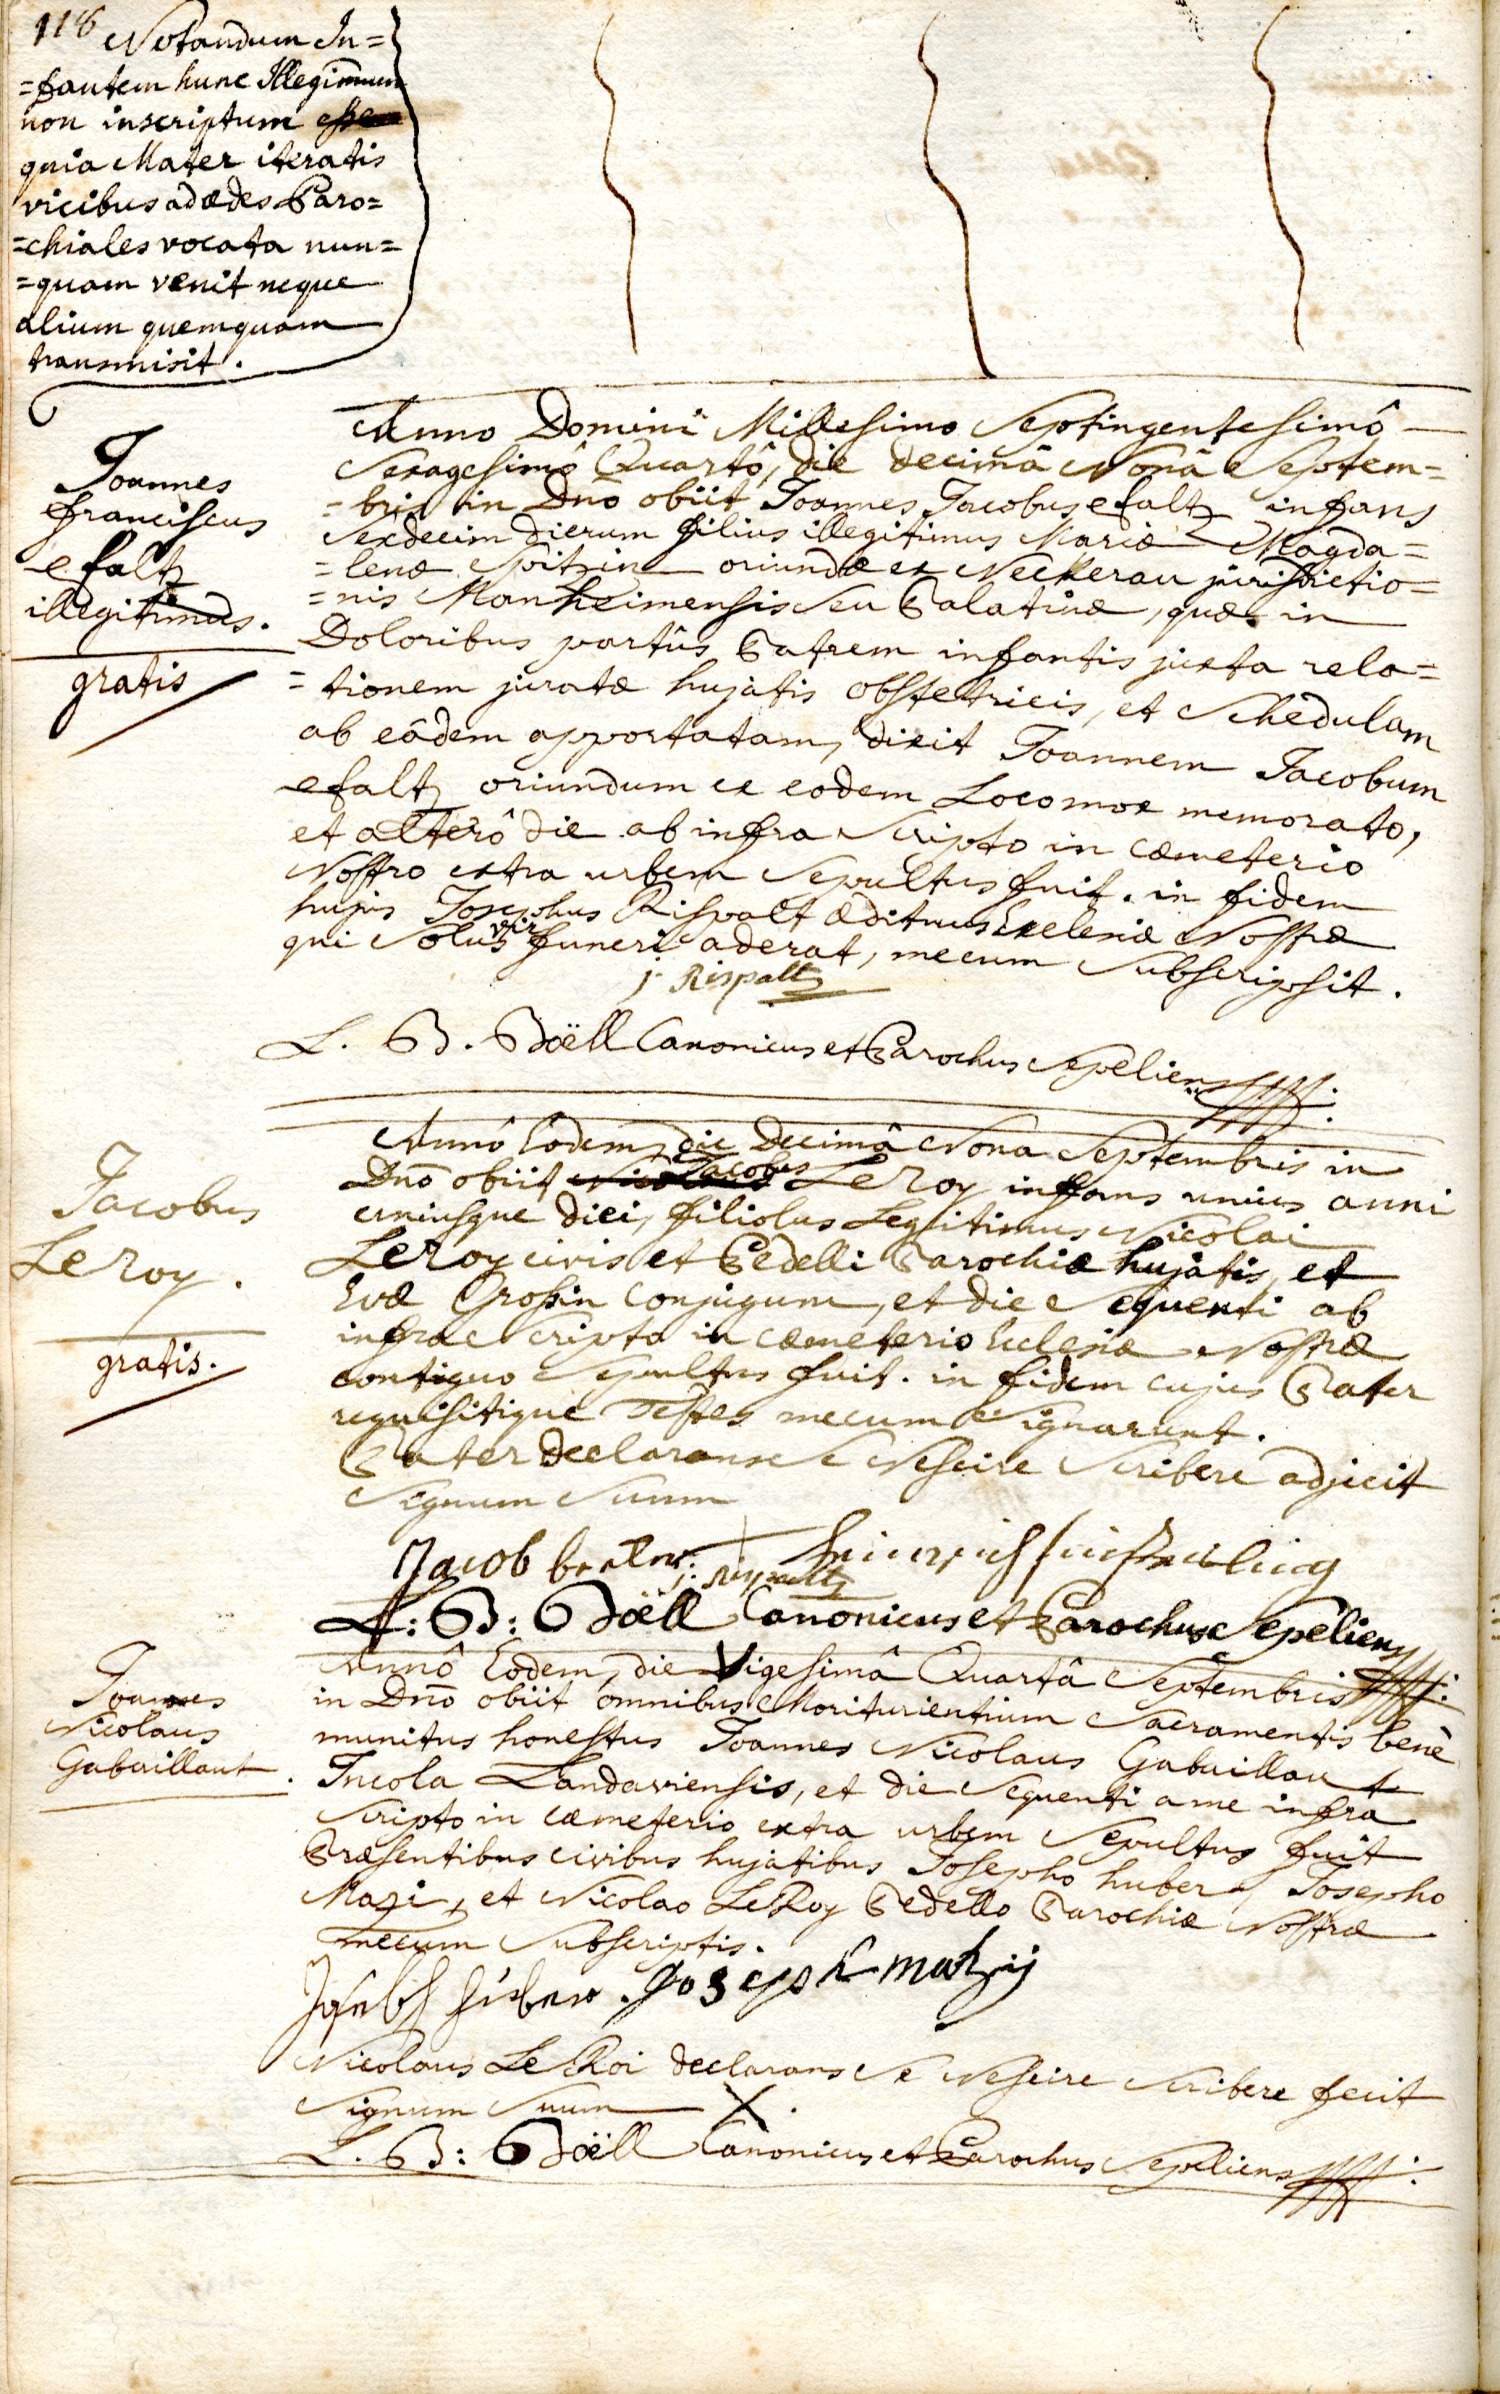 118
Notandum In=
=fantem hunc Illegitimum
non inscriptum
quia Mater iteratis
vicibus ad ædes Paro=
=chiales vocata nun=
=quam venit neque
alium quemquam
transmisit.
Joannes
franciscus
faltz
illegitimus.
gratis
Anno Domini Millesimo Septingentesimô
Sexagesimô Quartô, die decimâ Nonâ Septem=
=bris in Dnō obiit Joannes Jacobus faltz infans
Sexdecim dierum filius illegitimus Mariæ Magda=
=lenæ Spitzin oriundæ ex Neckerau jurisdictio=
=nis Manheimensis Seu Palatinæ, quæ in
Doloribus partûs Patrem infantis juxta rela=
=tionem juratæ hujatis obstetricis, et Schedulam
ab eâdem apportatam, dixit Joannem Jacobum
faltz oriundum ex eodem Loco mox memorato,
et alterô die ab infra Scripto in cæmeterio
Nostro extra urbem Sepultus fuit. in fidem
hujus Josephus Rispalt ædituus Ecclesiæ Nostræ
qui Solus vir funeri aderat, mecum Subscripsit.
j. Rispaltz
L. B. Boëll Canonicus et Parochus Sepeliens
Jacobus
LeRoy.
gratis.
Annô Eodem, die Decimâ Nona Septembris in
Dnō obiit Jacobus LeRoy infans unius anni
uniusque diei, filiolus Legitimus Nicolai
LeRoy civis et Pedelli Parochiæ hujatis, et
Evæ Grossin Conjugum, et die Sequenti ab
infra Scripto in cæmeterio Ecclesiæ Nostræ
contiguo Sepultus fuit. in fidem cujus Pater
requisitique Testes mecum Signarunt.
Pater declarans Se Nescire Scribere adjicit
Signum Suum
Jacob
j. Rispaltz
L: B: Boëll Canonicus et Parochus Sepeliens
Joannes
Nicolaus
Gabaillaut.
Annô Eodem, die Vigesimâ Quartâ Septembris
in Dnō obiit omnibus Moriturientium Sacramentis benè
munitus honestus Joannes Nicolaus Gabaillaut
Incola Landaviensis, et die Sequenti a me infra
Scripto in cæmeterio extra urbem Sepultus fuit
Præsentibus civibus hujatibus Josepho huber, Josepho
Mazi, et Nicolao LeRoy Pedello Parochiæ Nostræ
mecum Subscriptis.
Joseph huber. Joseph matzij
Nicolaus LeRoi declarans Se Nescire Scribere fecit
Signum Suum X.
L. B: Boëll Canonicus et Parochus Sepeliens